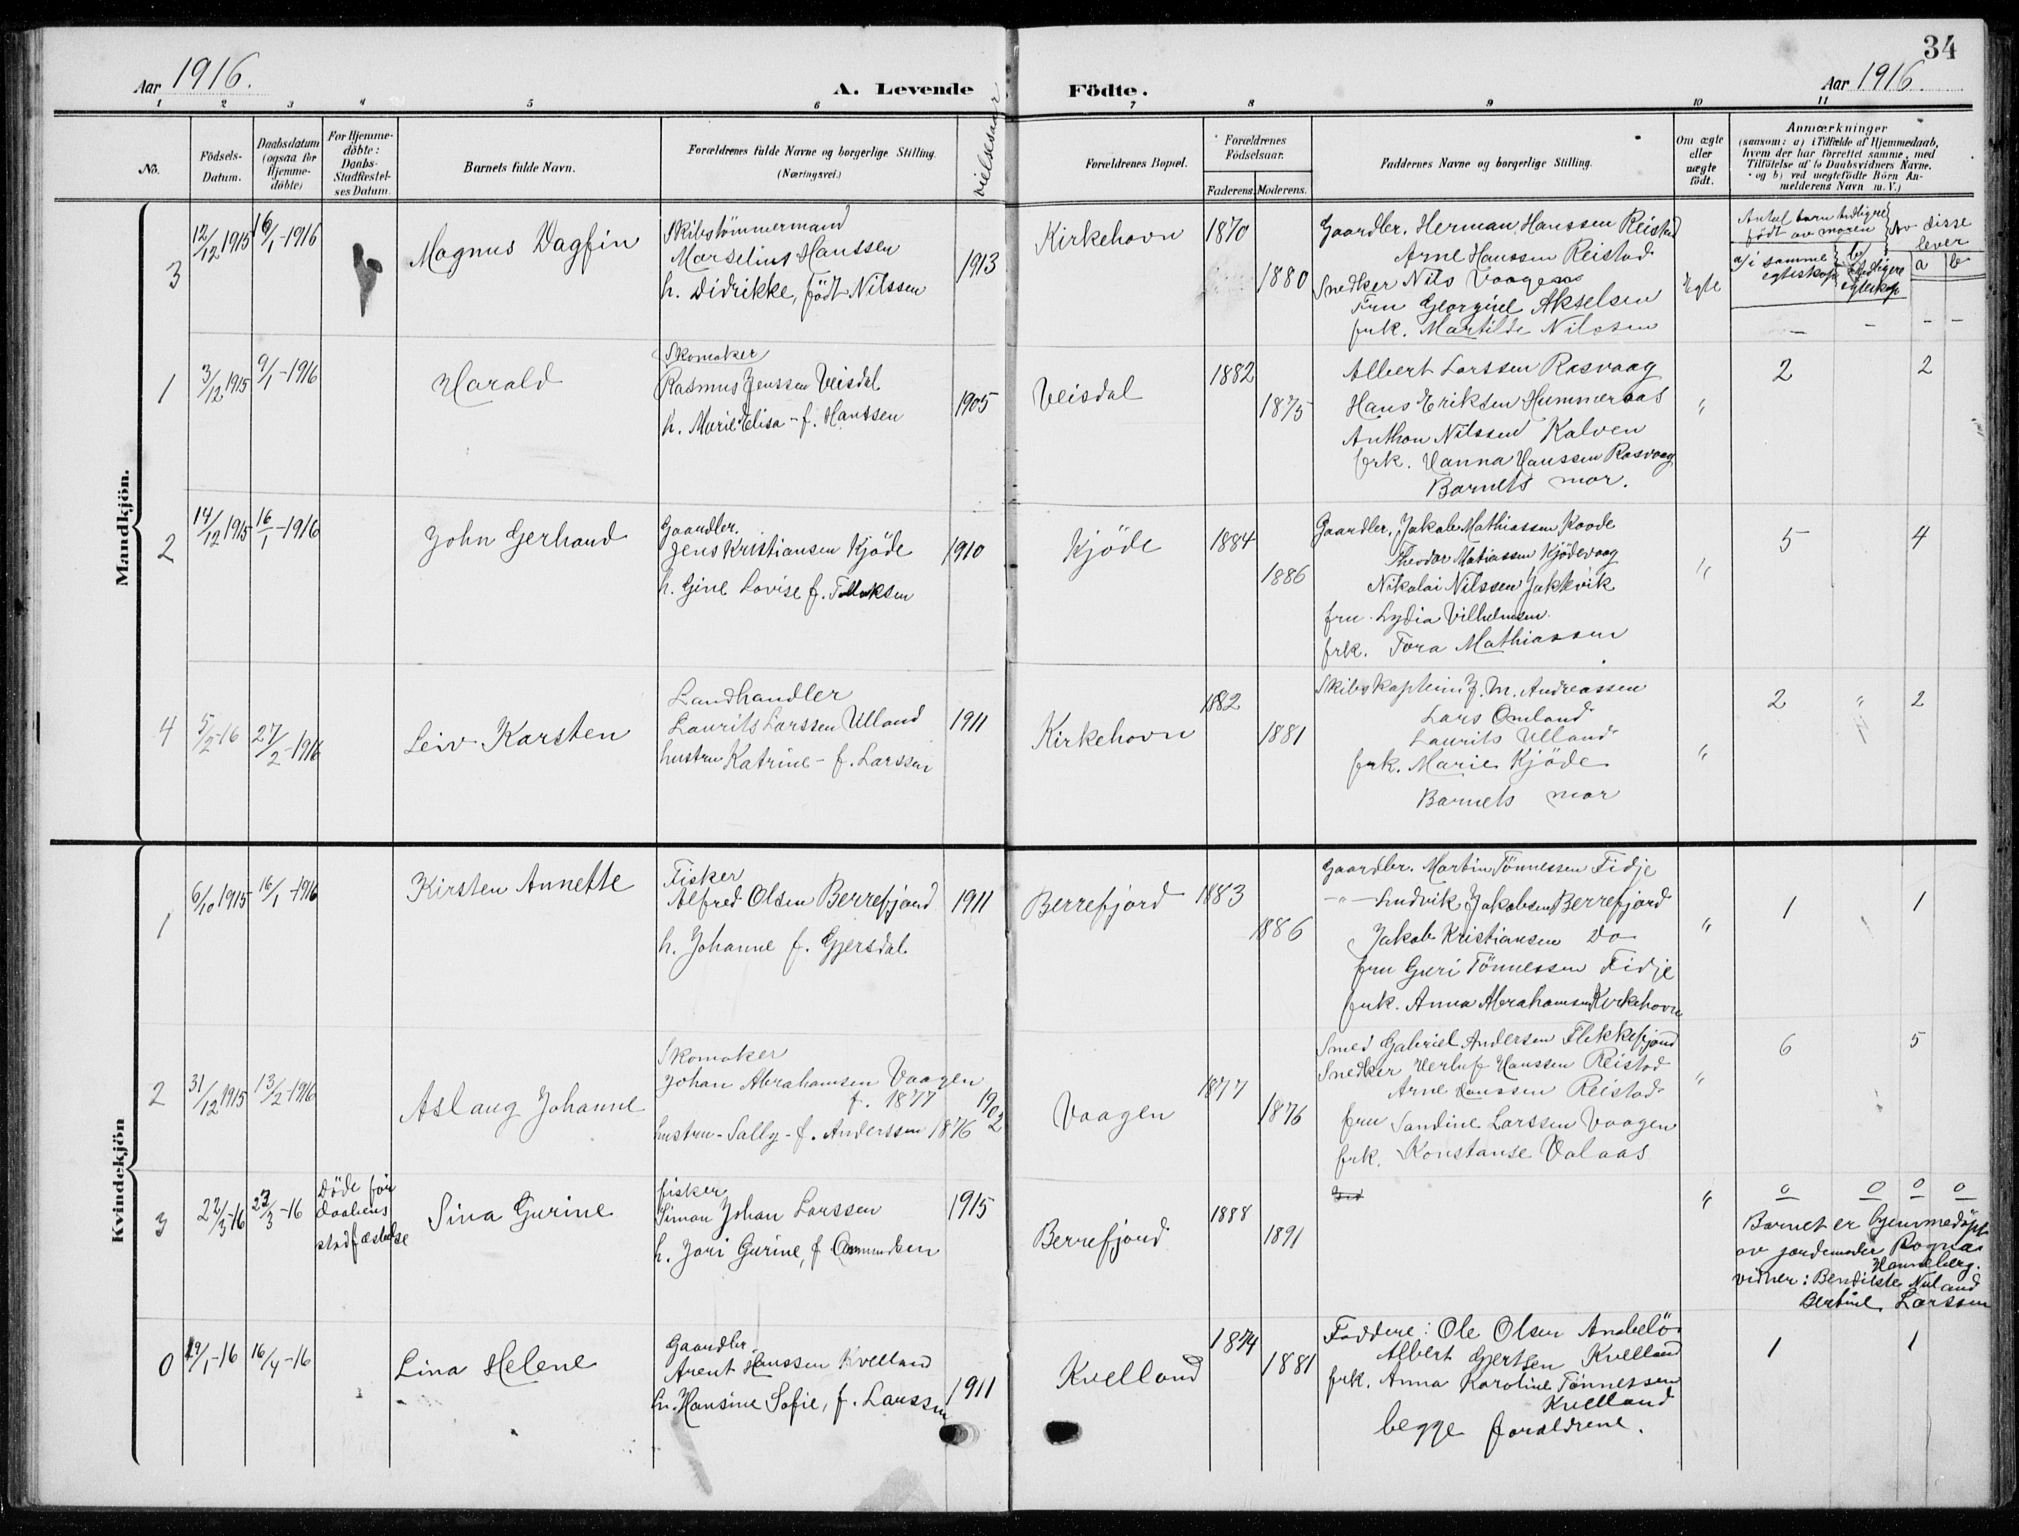 34
Aar 1916.
A. Levende Födte.
Aar 1916.
1 2 3 4 5 6 7 8 9 10 11
No.
Födsels-
Datum.
Daabsdatum
(ogsaa for
Hjemme-
döbte)
For Hjemme-
döbte:
Daabs-
Stadfæstel-
ses Datum.
Barnets fulde Navn.
Forældrenes fulde Navne og borgerlige Stilling.
(Næringsvei.)
vielsesaar
Forældrenes Bopæl.
Forældrenes
Födselsaar.
Faderens. Moderens.
Faddernes Navne og borgerlige Stilling.
Om ægte
eller
uægte
födt.
Anmærkninger
(saasom: a) i Tilfælde af Hjemmedaab,
hvem der har forrettet samme, med
Tilföielse af to Daabsvidners Navne,
og b) ved uægtefödte Börn An-
melderens Navn m. V.)
Mandkjön.
3
12/12 1915
16/1-1916
Magnus Dagfin
Skibstömmermand
Marselius Hanssen
h. Didrikke, födt Nilssen
1913
Kirkehavn
1870
1880
Gaardbr. Herman Hanssen Reistad
Arne Hanssen Reistad
Snedker Nils Vaagesas
Fru Georgine Akselsen
frk. Martilde Nilssen
Egte
Antal barn tidligere
født av moren
Av disse
lever
a/ i samme
egteskap
b/ tidligere
egteskap
a b
– – – –
1
3/12 1915
9/1-1916
Harald
Skomaker
Rasmus Jenssen Veisdal
h. Marie Elisa - f. Hanssen
1905
Veisdal
1882
1875
Albert Larssen Rasvaag
Hans Eriksen Hummeraas
Anthon Nilssen Kalven
frk. Hanna Hanssen Rasvaag
Barnets mor.
"
2 2
2
14/12 1915
16/1-1916
John Gerhard
Gaardbr.
Jens Kristiansen Kjöde
h. Gine Lovise f.
1910
Kjöde
1884
1886
Gaardbr. Jakob Mathiassen Kaade
Theodor Matiassen Kjödevaag
Nikolai Nilssen Jakkvik
fru Lydia Vilhelmsen
frk. Tora Mathiassen
"
5 4
4
5/2-16
27/2-1916
Leiv Karsten
Landhandler
Laurits Larssen Ulland
hustru Katrine - f. Larssen
1911
Kirkehavn
1882
1881
Skibskaptein J. M. Andreassen
Lars Omland
Laurits Ulland
frk. Marie Kjöde
Barnets mor
"
2 " 2
Kvindekjön
1
6/10 1915
16/1-1916
Kirsten Annette
Fisker
Alfred Olsen Berrefjord
h. Johanne f. Gjersdal
1911
Berrefjord
1883
1886
Gaardbr. Martin Tönnessen Fidje
-"- Ludvik Jakobsen Berrefjord
Jakob Kristiansen Do
fru Guri Tönnessen Fidje
frk. Anna Abrahamsen Kirkehavn
"
1 1
2
31/12 1915
13/2-1916
Aslaug Johanne
Skomaker
Johan Abrahamsen Vaagen
f. 1877
hustru - Sally - f. Anderssen 1876
1902
Vaagen
1877
1876
Smed Gabriel Andersen Flekkefjord
Snedker Herluf Hanssen Reistad
Arne Hanssen Reistad
fru Sandine Larssen Vaagen
frk. Konstanse Valaas
"
6 5
3
22/3-16
23/3-16
Döde för
daabens
stadfæstelse
Sina Gurine
fisker
Simon Johan Larssen
h. Jori Gurine, f. Omundsen
1915
Berrefjord
1888
1891
"
0 0 0 0
Barnet er hjemmedöpt
av jordemoder Ragna
Hanneberg.
vidner: Bendikte Nuland
Bertine Larssen
0
19/1-16
16/4-16
Lina Helene
Gaardbr.
Arent Hanssen Kvelland
h. Hansine Sofie, f. Larssen
1911
Kvelland
1874
1881
Faddere: Ole Olsen Anabelö
Albert Gjertsen Kvelland
frk. Anna Karoline Tönnessen
Kvelland
begge foraldrene.
1 1